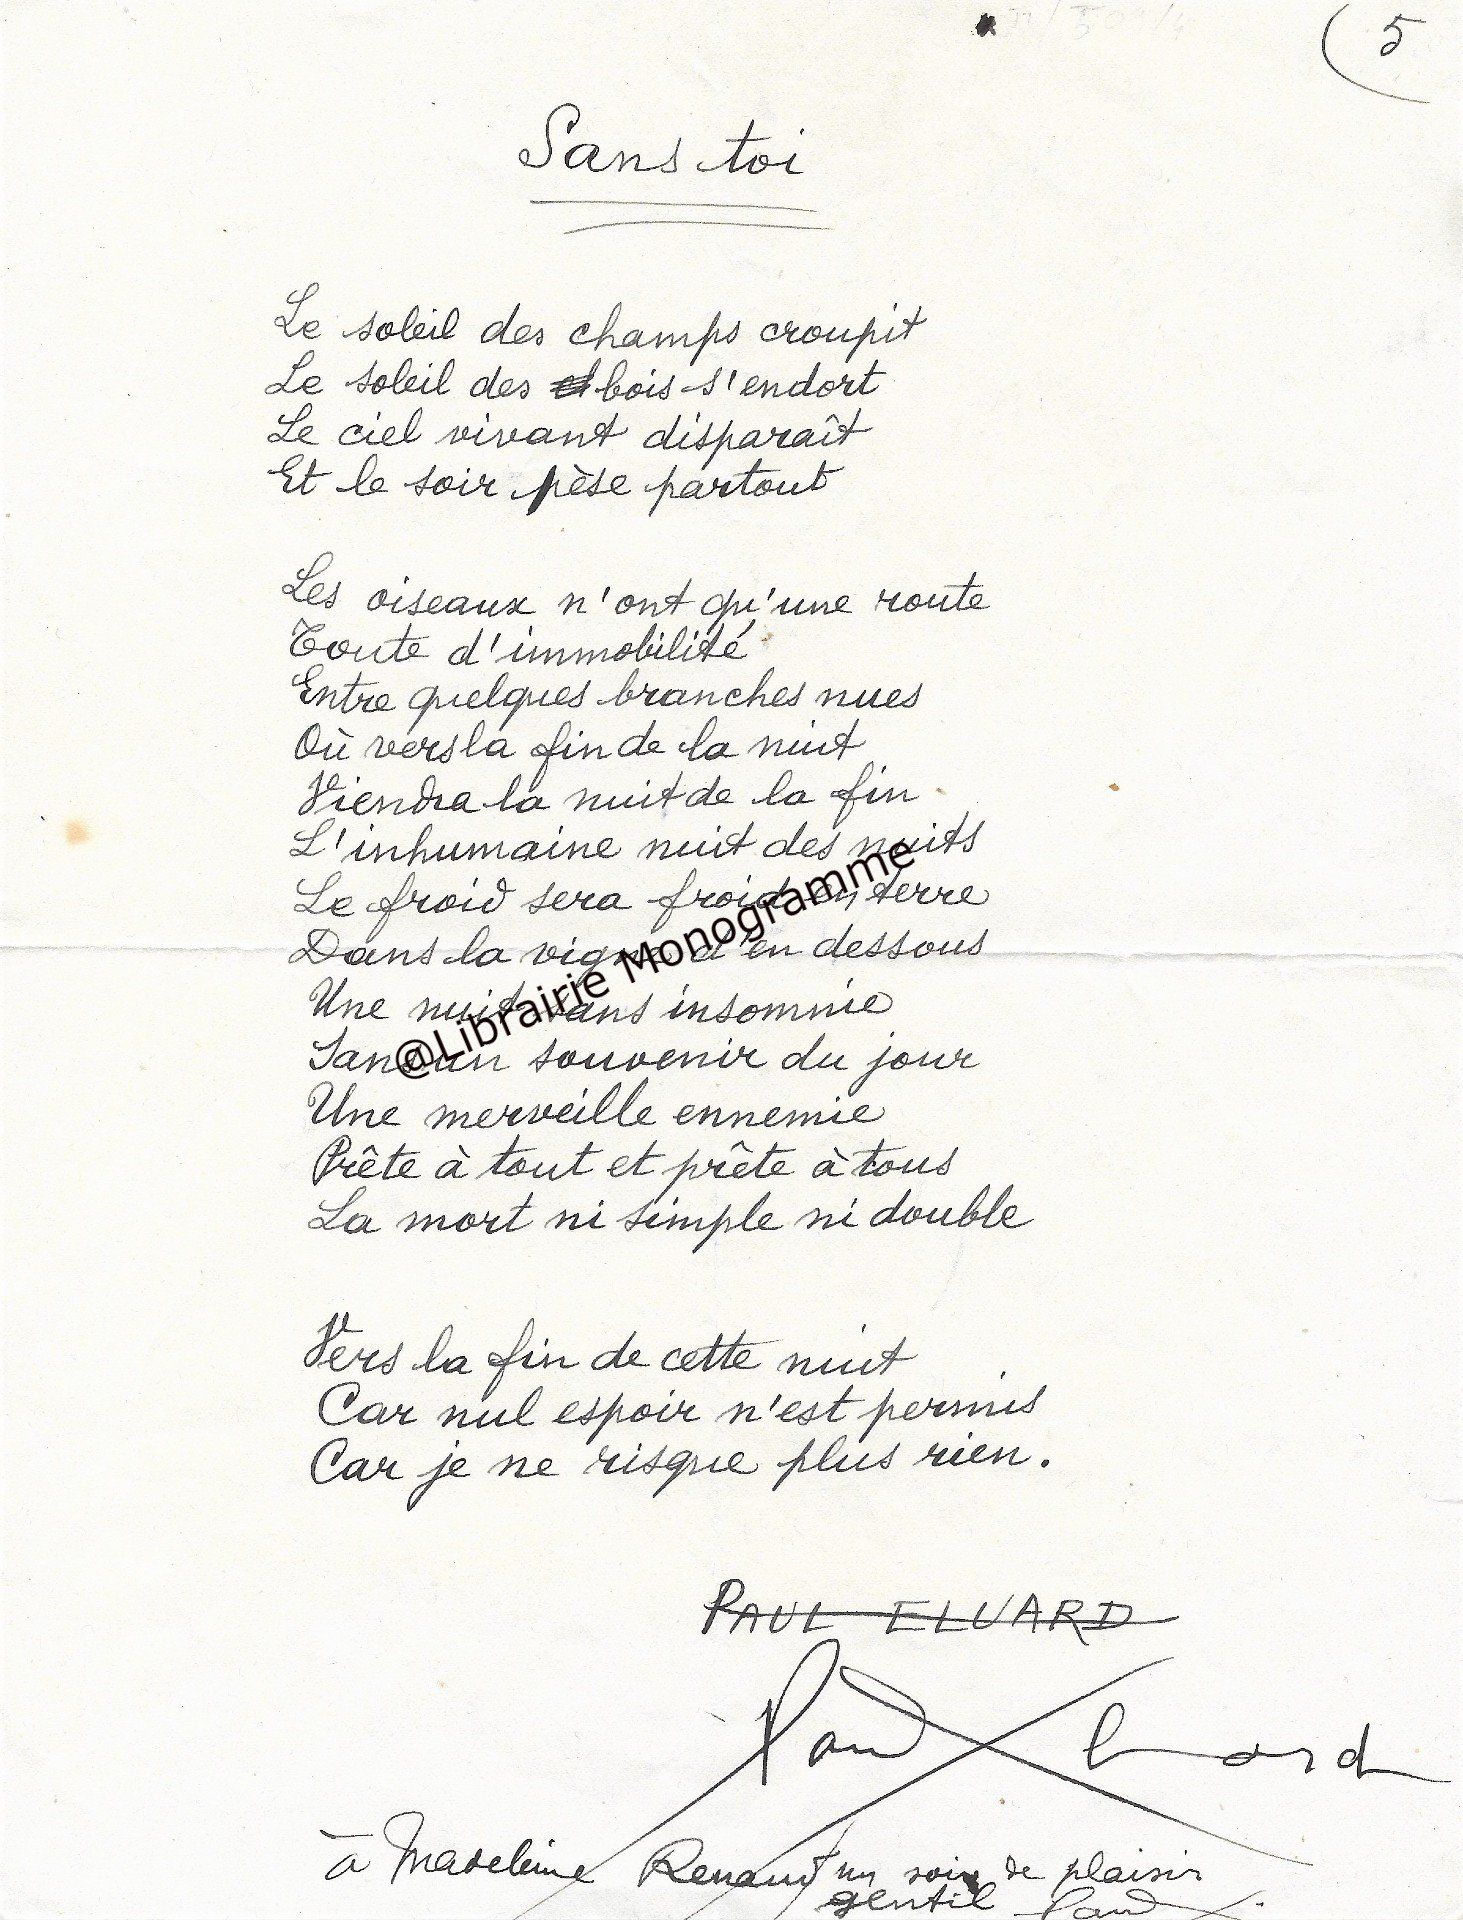 5
Sans toi
Le soleil des champs croupit
Le soleil des bois s'endort
Le ciel vivant disparaît
Et le soir pèse partout
Les oiseaux n'ont qu'une route
Toute d'immobilité
Entre quelques branches nues
Où vers la fin de la nuit
Viendra la nuit de la fin
L'inhumaine nuit des nuits
Le froid sera froid en terre
Dans la vigne d'en dessous
Une nuit sans insomnie
Sans un souvenir du jour
Une merveille ennemie
Prête à tout et prête à tous
La mort ni simple ni double
Vers la fin de cette nuit
Car nul espoir n'est permis
Car je ne risque plus rien.
PAUL ELUARD
Paul Eluard
à Madeleine Renaud un soir de plaisir
gentil Paul
@Librairie Monogramme